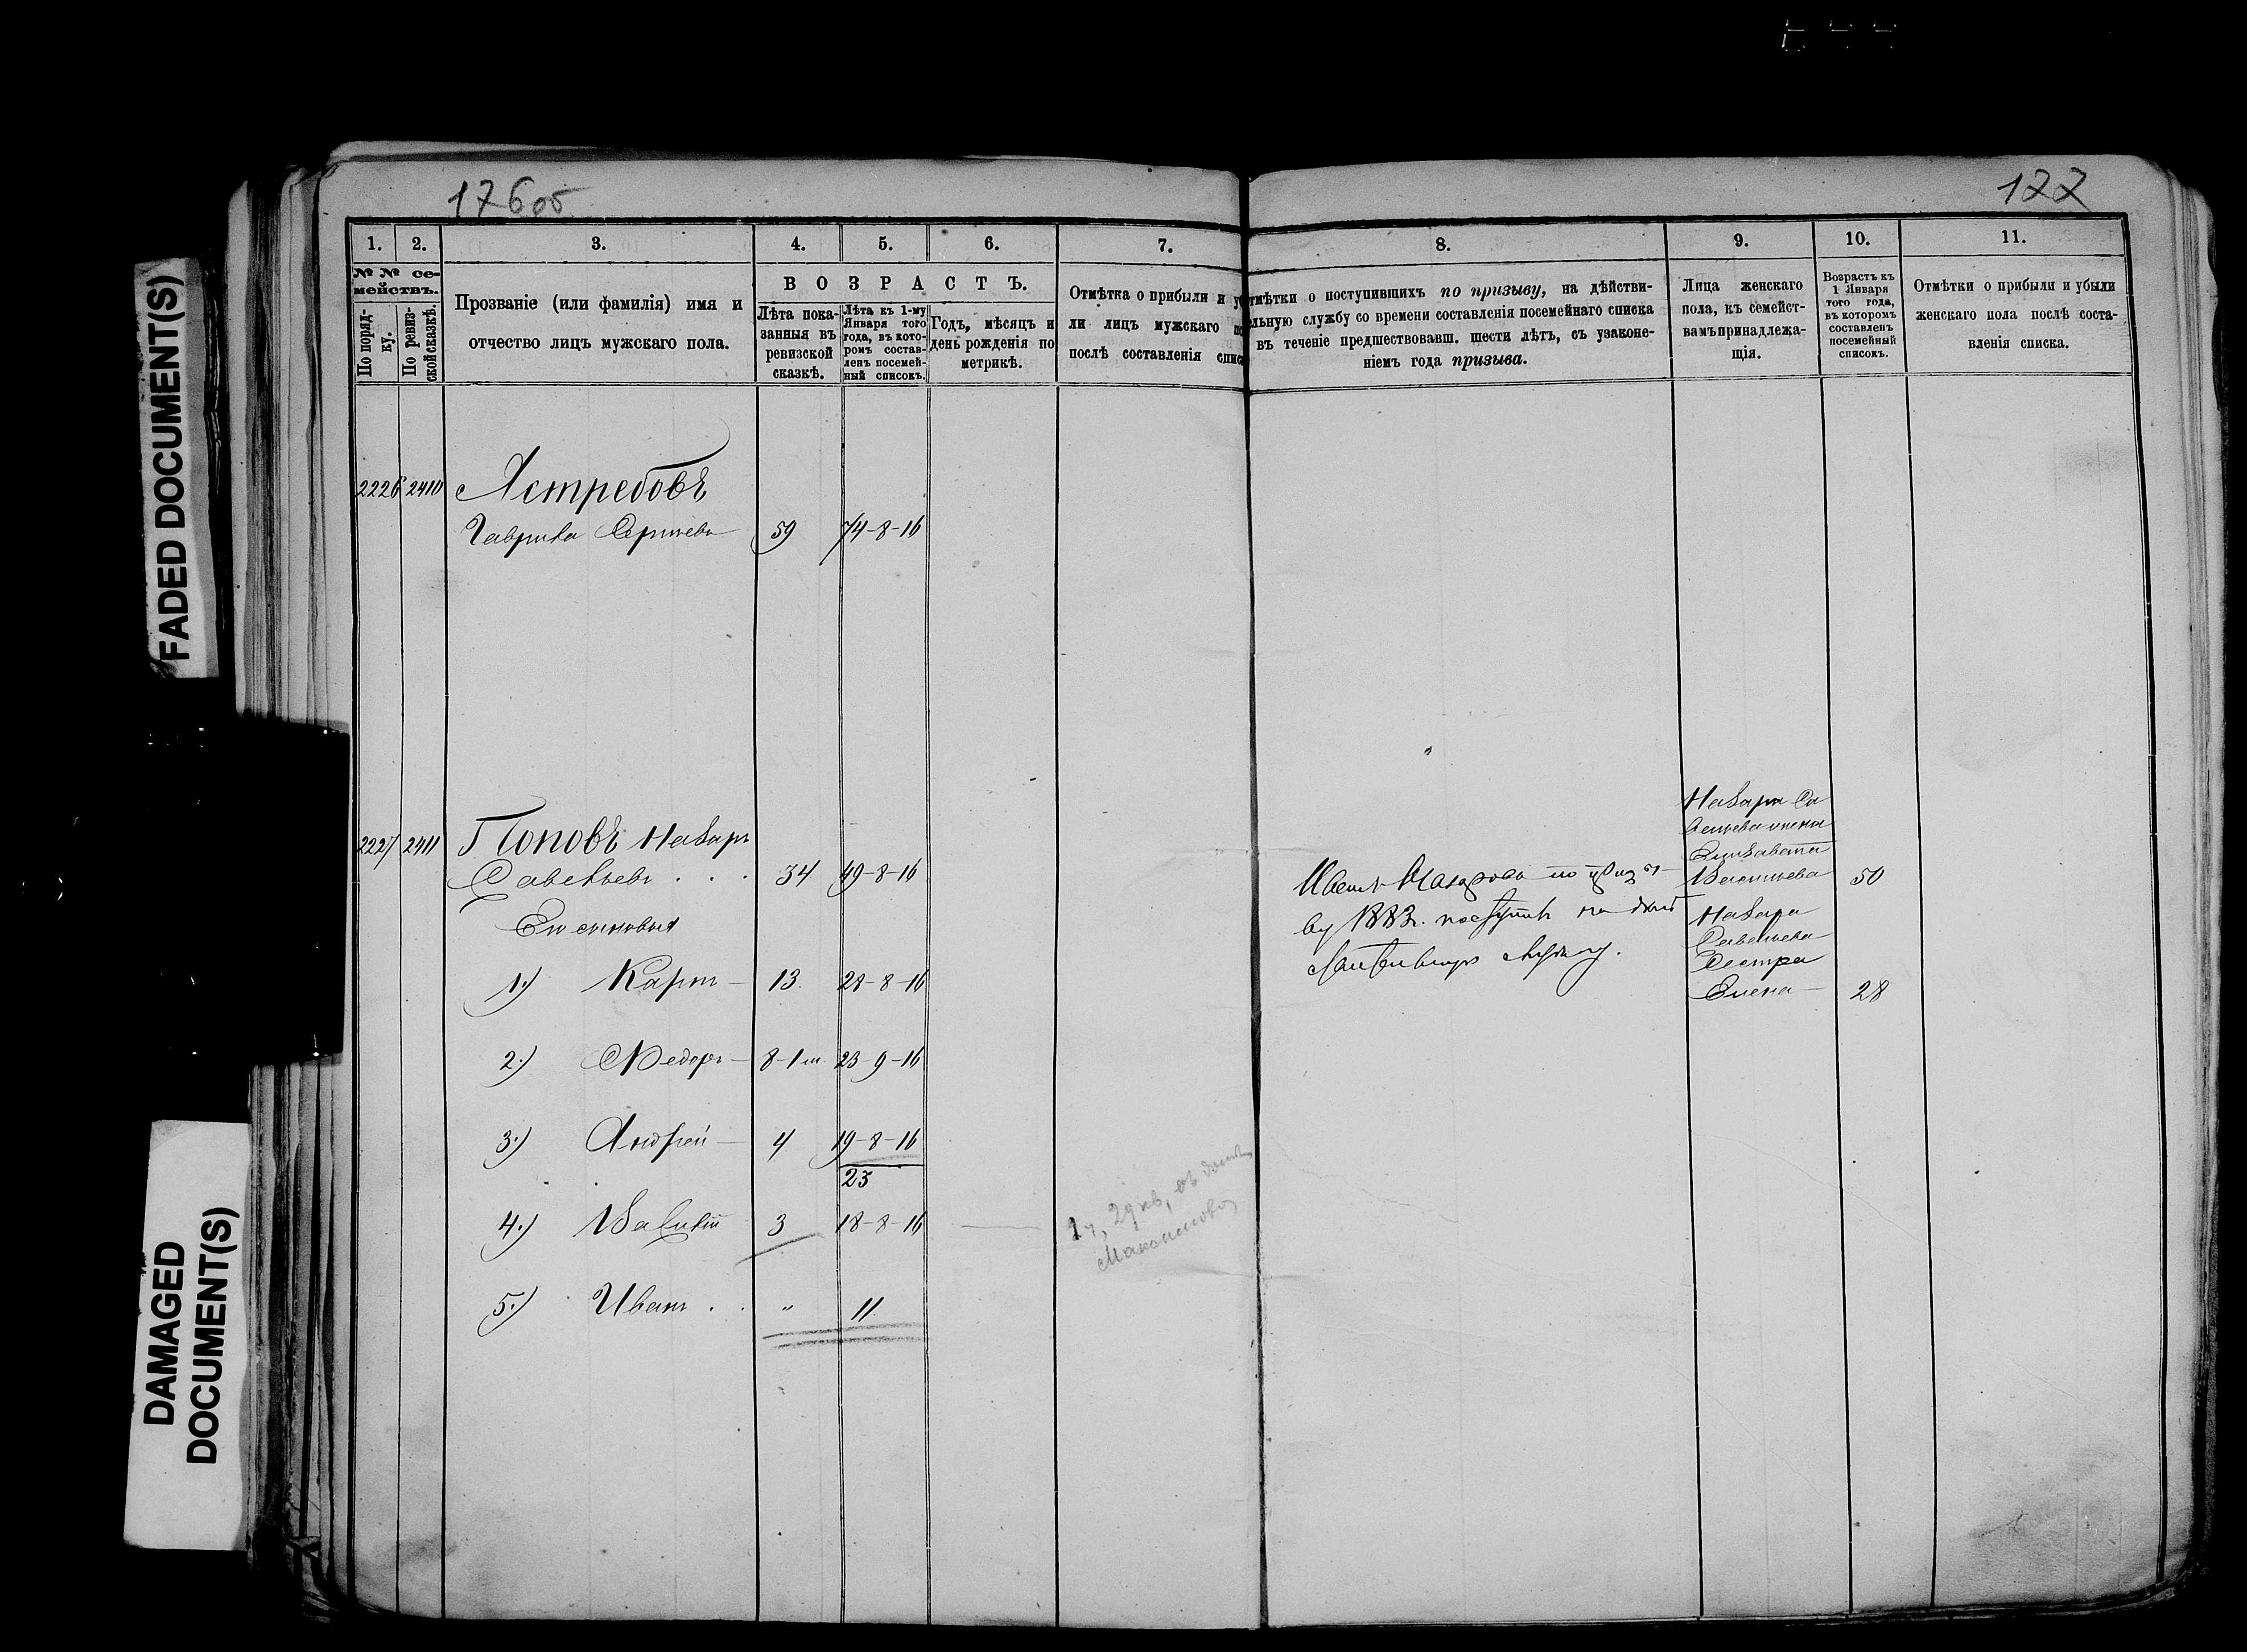 FADED DOCUMENT(S)
DAMAGED
DOCUMENT(S)
176об
122
1.
2.
3.
4.
5.
6.
7.
8.
9.
10.
11.
№ № се-
мействъ.
По поряд-
ку.
По ревиз-
ской сказкѣ.
Прозваніе (или фамилія) имя и
отчество лицъ мужскаго пола.
ВОЗРАСТЪ.
Лѣта пока-
занныя въ
ревизской
сказкѣ.
Лѣта къ 1-му
Января того
года, въ кото-
ромъ состав-
ленъ посемей-
ный списокъ.
Годъ, мѣсяцъ и
день рожденія по
метрикѣ.
Отмѣтка о прибыли и у
ли лицъ мужскаго по
послѣ составленія спис
тмѣтки о поступившихъ по призыву, на дѣйстви-
ельную службу со времени составленія посемейнаго списка
въ теченіе предшествовавш. шести лѣтъ, съ узаконе-
ніемъ года призыва.
Лица женскаго
пола, къ семейст-
вамъ принадлежа-
щія.
Возрастъ къ
1 Января
того года,
въ которомъ
составленъ
посемейный
списокъ.
Отмѣтки о прибыли и убыли
женскаго пола послѣ соста-
вленія списка.
2226 2410 Ястребовъ
Гаврила Сергѣевъ 59 74-8-16
2227 2411 Поповъ Назаръ
Савельевъ . . . 34 49-8-16
Его сыновья
1.) Карпъ 13 28-8-16
2.) Федоръ 8-1м 23-9-16
3.) Андрей 4 19-8-16
23
4.) Василій 3 18-8-16
5.) Иванъ . . " 11
Макаколово
Иванъ Назаровъ по призы-
ву 1883г. поступилъ на дѣйст
службу.
Назара Са
вельева жена
Елизавета
Васильева 50
Назара
Савельева
Сестра
Елена 28